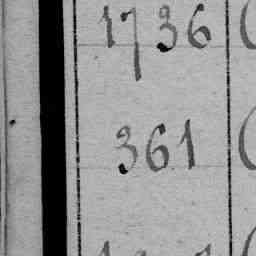 1736
361